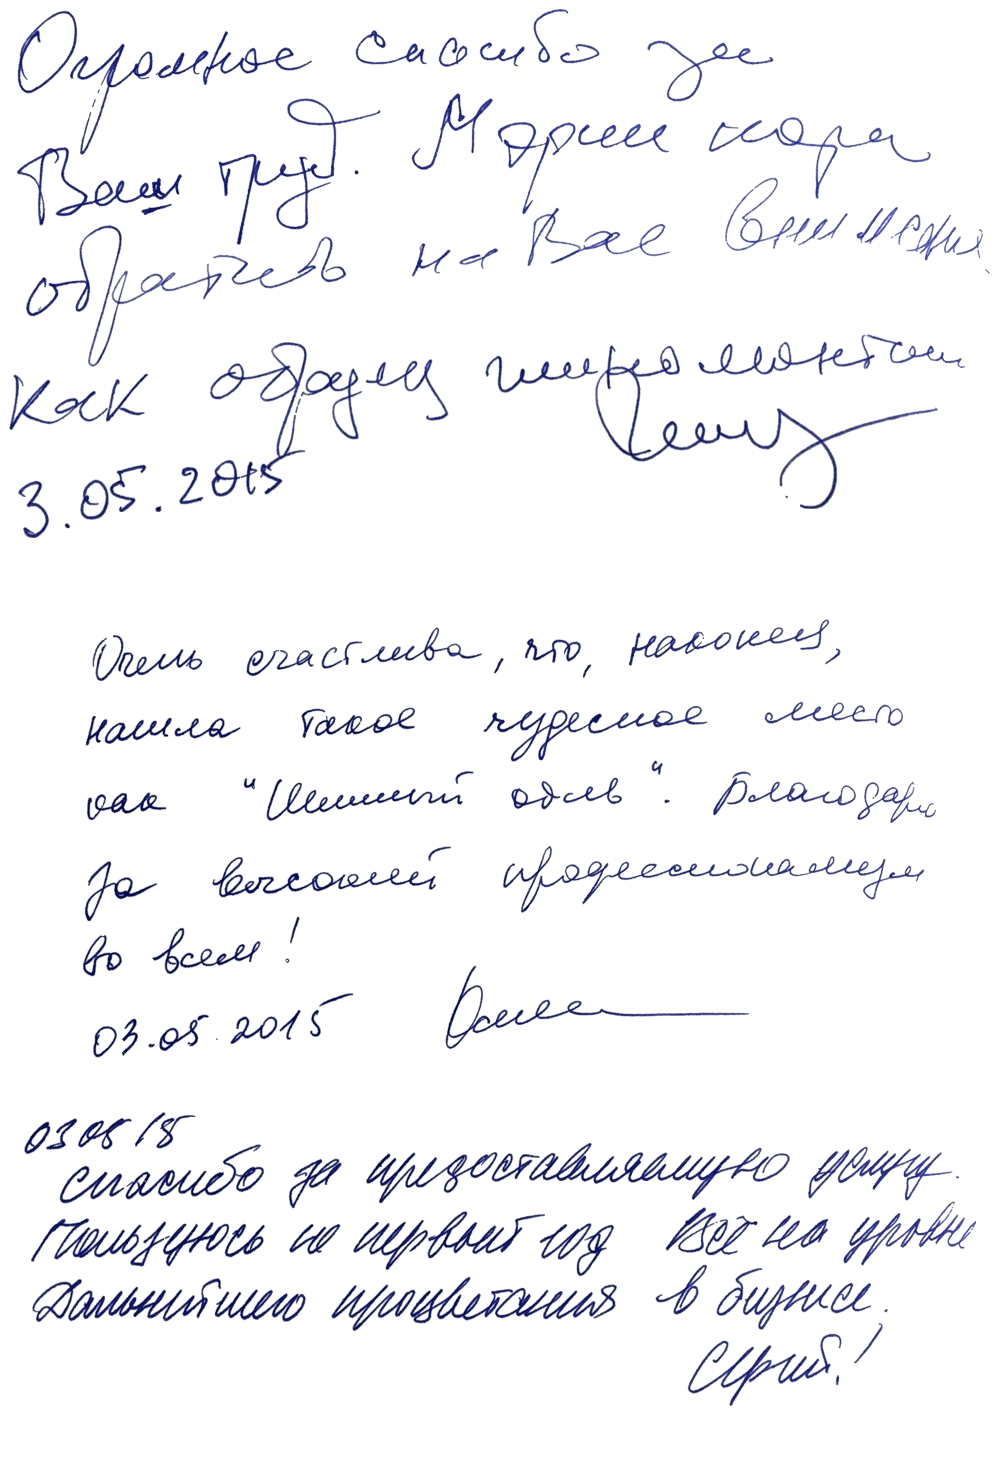 Огромное спасибо за
Ваш труд. Мэрии пора
обратить на Вас внимание.
Как образец шиномонтажа
3.05.2015
Очень счастлива, что, наконец,
нашла такое чудесное место
как "Шинный рай". Благодарю
За высокий профессионализм
во всем!
03.05.2015
03 05 15
Спасибо за предоставляемую услугу.
Пользуюсь не первый год Всё на уровне
Дальнейшего процветания в бизнесе.
Сергей!